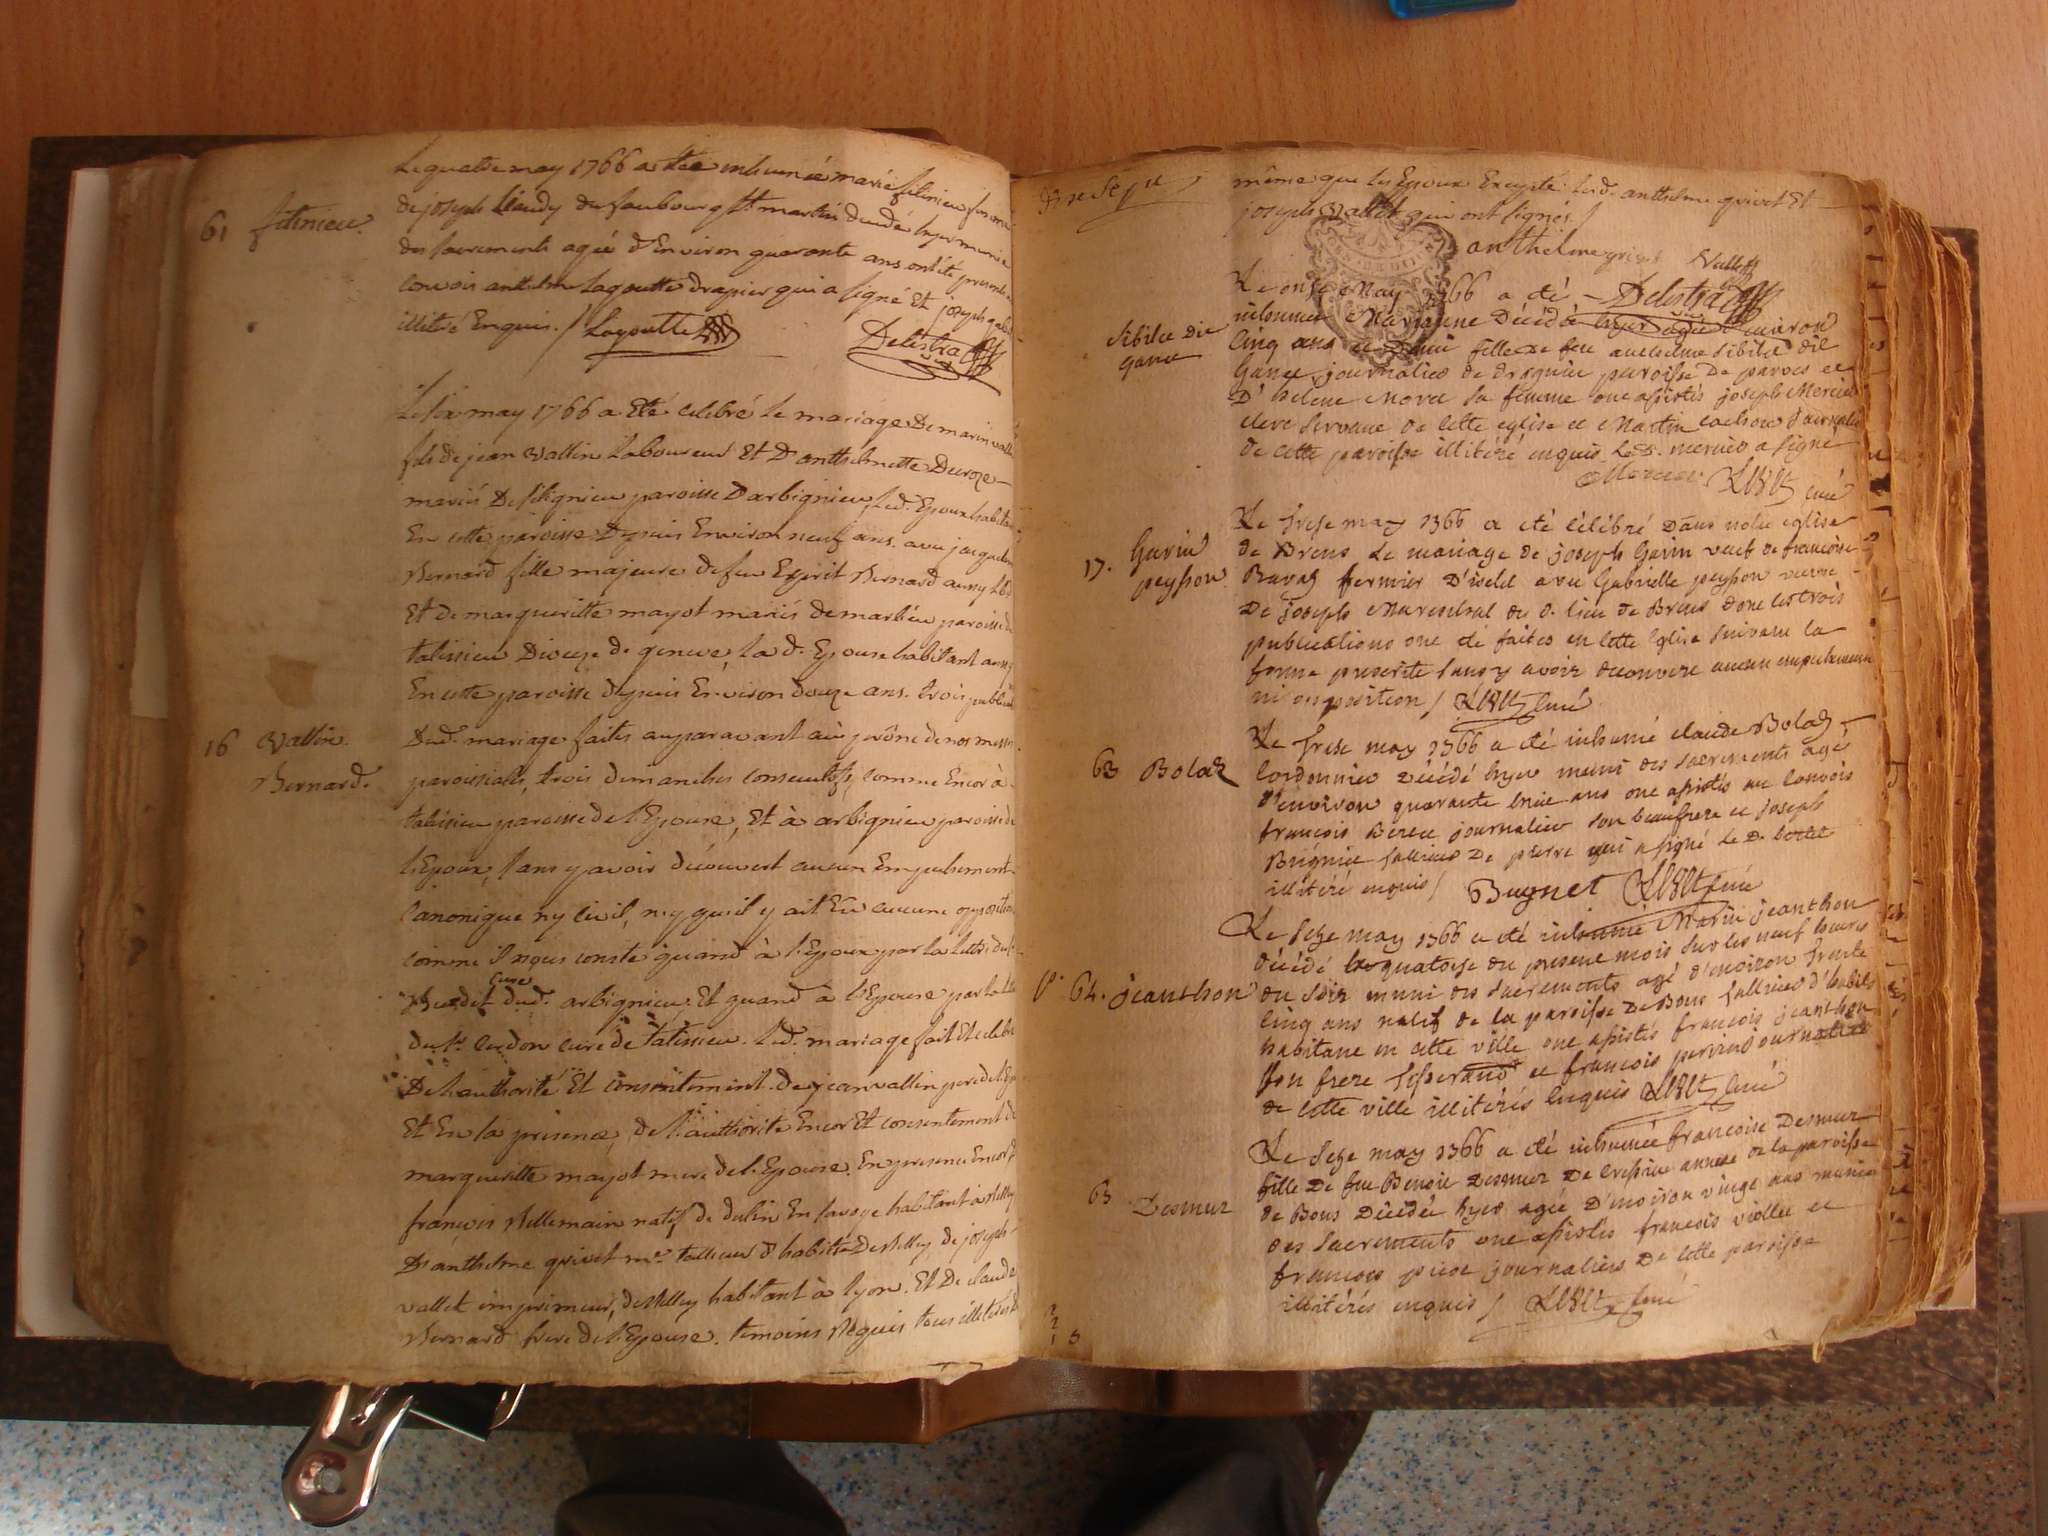 61 fitinieu.
Le quatre may 1766 a été inhumée marie fitinieu femme
de joseph Claudy du faubourg St martin decedé hyer munie
des sacrements agée d'Environ quarante ans ont été presents au
convois anthelme Lagoutte drapier qui a signé Et joseph
illitéré Enquis. / Lagoutte
Delestra
Le six may 1766 a Eté celebré Le mariage De marin vallin
fils de jean Vallin Laboureur Et D'anthelmette Decroze
mariés De peignieu paroisse D'arbignieu, Led. Epoux habitant
En cette paroisse Depuis Environ neuf ans. avec jacqueline
Bernard fille majeure de feu Esprit Bernard
Et De margueritte mayot mariés de paroisse de
talissieu Dioceze de geneve, La d. Epouse habitant aussy
En cette paroisse depuis Environ douze ans. trois publications
16 Vallin.
Bernard.
Dud. mariage faites auparavant au prône de nos messes
paroissiales, trois dimanches consecutifs, comme Encor à
talissieu paroisse de l'Epouse, Et à arbignieu paroisse de
l'Epoux, sans y avoir découvert aucun Empechement
Canonique ny civil, ny qu'il y ait Eu aucune opposition
comme il nous conste quand à l'Epoux par la Lettre du Sr
curé dud. arbignieu, Et quand à l'Epouse par la Lettre
du Sr. Cardon curé de Talissieu. Led. mariage fait Et celebré
De l'authorité Et consentement de jean vallin pere de l'Epoux
Et En la presence, de l'authorité Encor Et consentement de
margueritte mayot mere de l'Epouse. En presence Encor de
françois Millemain natif de dulin En savoye habitant à Belley
D'anthelme grivet me. tailleur d'habits De Belley, de joseph
vallet imprimeur, de Belley habitant à Lyon. Et De claude
Bernard frere de l'Epouse. temoins Requis tous illiterés de
même que les Epoux Excepté Led. anthelme grivet Et
joseph Vallet qui ont signés. /
anthelme grivet Vallet
Delestra
Sibilie dit
ganet
Le onze May 1766 a été
inhumée Marianne Décédée hyer agée d'environ
cinq ans et demi fille de feu anthelme Sibilie dit
Ganet journalier de paroisse De parves et
D'helene Morel sa femme ont assistés joseph Mercier
clerc servant de cette église et Martin cochon journalier
de cette paroisse illitéré enquis Le d. mercier a signé
Mercier curé
17. Garin
peysson
Le treze may 1766 a été célébré Dans notre eglise
de Brens Le mariage de joseph Garin veuf de françoise
Ravaz fermier D'iselet avec Gabrielle peysson veuve
De joseph Mareschal du d. lieu de Brens dont les trois
publications ont été faites en cette Eglise suivant la
forme prescrite sans y avoir decouvert aucun empechement
ni opposition / curé
63 Bolaz
Le treze may 1766 a été inhumé claude Bolaz
cordonnier Décédé hyer muni des sacrements agé
d'environ quarante huit ans ont assistés au convois
françois journalier son beaufrere et joseph
tailleur De pierre qui a signé Le D.
illitéré enquis / Buynet curé
64. jeanthon
Le seze may 1766 a été inhumé Marin jeanthon
décédé le quatorze du present mois sur les neuf heures
du soir muni des sacrements agé d'environ trente
cinq ans natif de la paroisse De Bons tailleur d'habits
habitant en cette ville ont assistés françois jeanthon
son frere tisserand et françois journalier
de cette ville illitérés enquis curé
65 Desmur
Le seze may 1766 a été inhumée francoise Desmur
fille De feu Benoit Desmur De annexe de la paroisse
de Bons Décédée hyer agée D'environ vingt ans munie
des sacrements ont assistés françois viollet et
francois picot journaliers De cette paroisse
illitérés enquis / curé